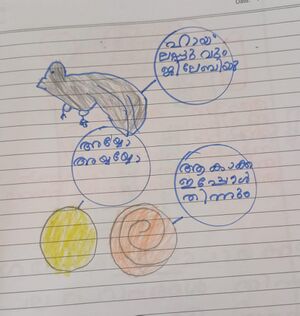 ഹായ്
ലഡ്ഡു വും
ജിലേബിയു
അയ്യോ
അയ്യയ്യോ
ആ കാക്ക
ഇപ്പോൾ
തിന്നും